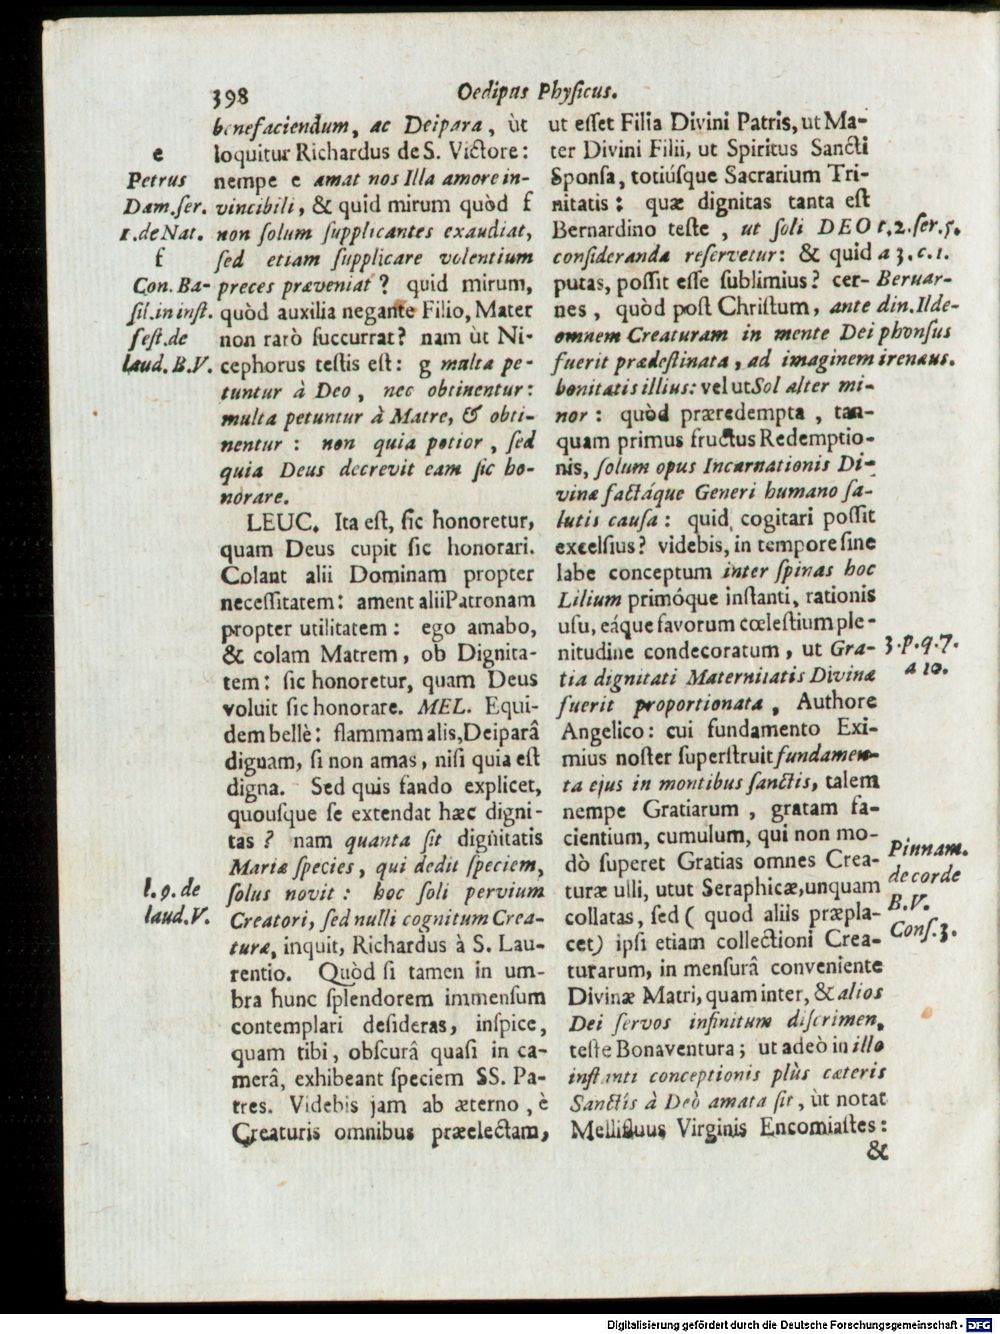 398 Oedipus Physicus.
benefaciendum, ac Deipara, ùt
loquitur Richardus de S. Victore:
nempe e amat nos Illa amore in-
vincibili, & quid mirum quòd f
non solum supplicantes exaudiat,
sed etiam supplicare volentium
preces præveniat? quid mirum,
quòd auxilia negante Filio, Mater
non rarò succurrat? nam ùt Ni-
cephorus testis est: g multa pe-
tuntur à Deo, nec obtinentur:
multa petuntur à Matre, & obti-
nentur: non quia potior, sed
quia Deus decrevit eam sic ho-
norare.
LEUC. Ita est, sic honoretur,
quam Deus cupit sic honorari.
Colant alii Dominam propter
necessitatem: ament alii Patronam
propter utilitatem: ego amabo,
& colam Matrem, ob Dignita-
tem: sic honoretur, quam Deus
voluit sic honorare. MEL. Equi-
dem bellè: flammam alis, Deiparâ
dignam, si non amas, nisi quia est
digna. Sed quis fando explicet,
quousque se extendat hæc digni-
tas? nam quanta sit dignitatis
Mariæ species, qui dedit speciem,
solus novit: hoc soli pervium
Creatori, sed nulli cognitum Crea-
turæ, inquit, Richardus à S. Lau-
rentio. Quòd si tamen in um-
bra hunc splendorem immensum
contemplari desideras, inspice,
quam tibi, obscurâ quasi in ca-
merâ, exhibeant speciem SS. Pa-
tres. Videbis jam ab æterno, è
Creaturis omnibus præelectam,
e
Petrus
Dam. ser.
1. de Nat.
f
Con. Ba-
sil. in inst.
fest. de
laud. B. V.
l. 9. de
laud. V.
ut esset Filia Divini Patris, ut Ma-
ter Divini Filii, ut Spiritus Sancti
Sponsa, totiúsque Sacrarium Tri-
nitatis: quæ dignitas tanta est
Bernardino teste, ut soli DEO
consideranda reservetur: & quid
putas, possit esse sublimius? cer-
nes, quòd post Christum, ante
omnem Creaturam in mente Dei
fuerit prædestinata, ad imaginem
bonitatis illius: vel ut Sol alter mi-
nor: quòd præredempta, tan-
quam primus fructus Redemptio-
nis, solum opus Incarnationis Di-
vinæ factáque Generi humano sa-
lutis causa: quid cogitari possit
excelsius? videbis, in tempore sine
labe conceptum inter spinas hoc
Lilium primóque instanti, rationis
usu, eáque favorum cœlestium ple-
nitudine condecoratum, ut Gra-
tia dignitati Maternitatis Divinæ
fuerit proportionata, Authore
Angelico: cui fundamento Exi-
mius noster superstruit fundamen-
ta ejus in montibus sanctis, talem
nempe Gratiarum, gratam fa-
cientium, cumulum, qui non mo-
dò superet Gratias omnes Crea-
turæ ulli, utut Seraphicæ, unquam
collatas, sed (quod aliis præpla-
cet) ipsi etiam collectioni Crea-
turarum, in mensurâ conveniente
Divinæ Matri, quam inter, & alios
Dei servos infinitum discrimen,
teste Bonaventura; ut adeò in illo
instanti conceptionis plùs cæteris
Sanctis à Deò amata sit, ùt notat
Mellifluus Virginis Encomiastes:
&
t. 2. ser. 5.
a 3. c. 1.
Bernar-
din. Ilde-
phonsus
irenæus.
3. p. q. 7.
a 10.
Pinnam.
de corde
B. V.
Cons. 3.
Digitalisierung gefördert durch die Deutsche Forschungsgemeinschaft - DFG